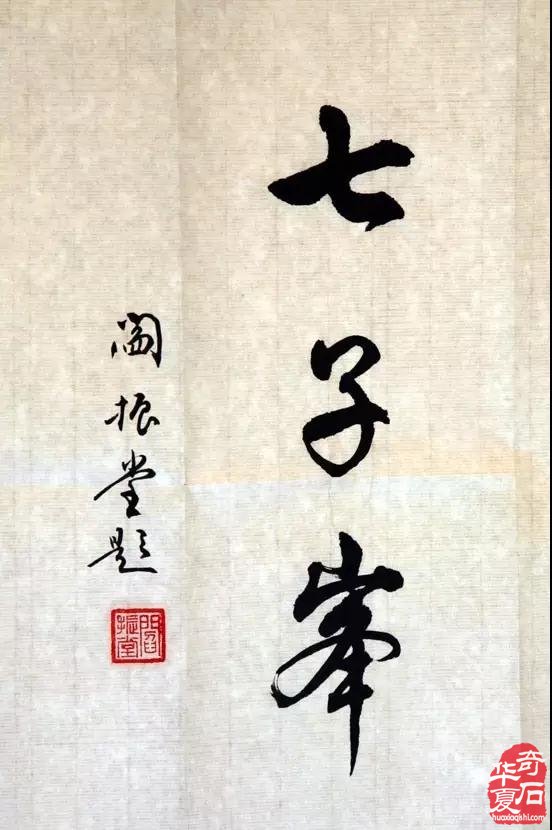 七子峯
阎振堂题
閻振堂
华夏奇石
huaxiaqishi.com